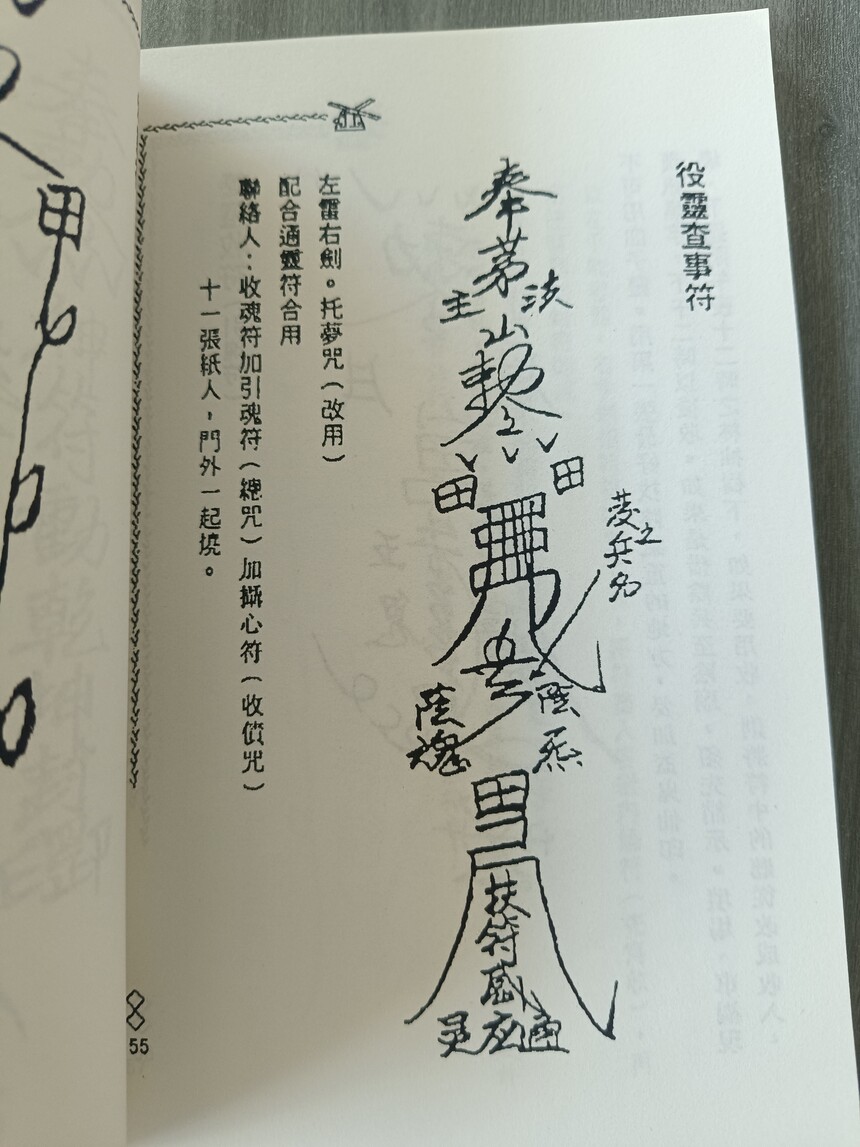 役靈查事符
奉茅山勅令
法
主
田
田
之
兵
陸
陸
魂
扶符感
灵应通
左雷右劍。托夢咒(改用)
配合通靈符合用
聯絡人:收魂符加引魂符(總咒)加攝心符(收債咒)
十一張紙人,門外一起燒。
55
田